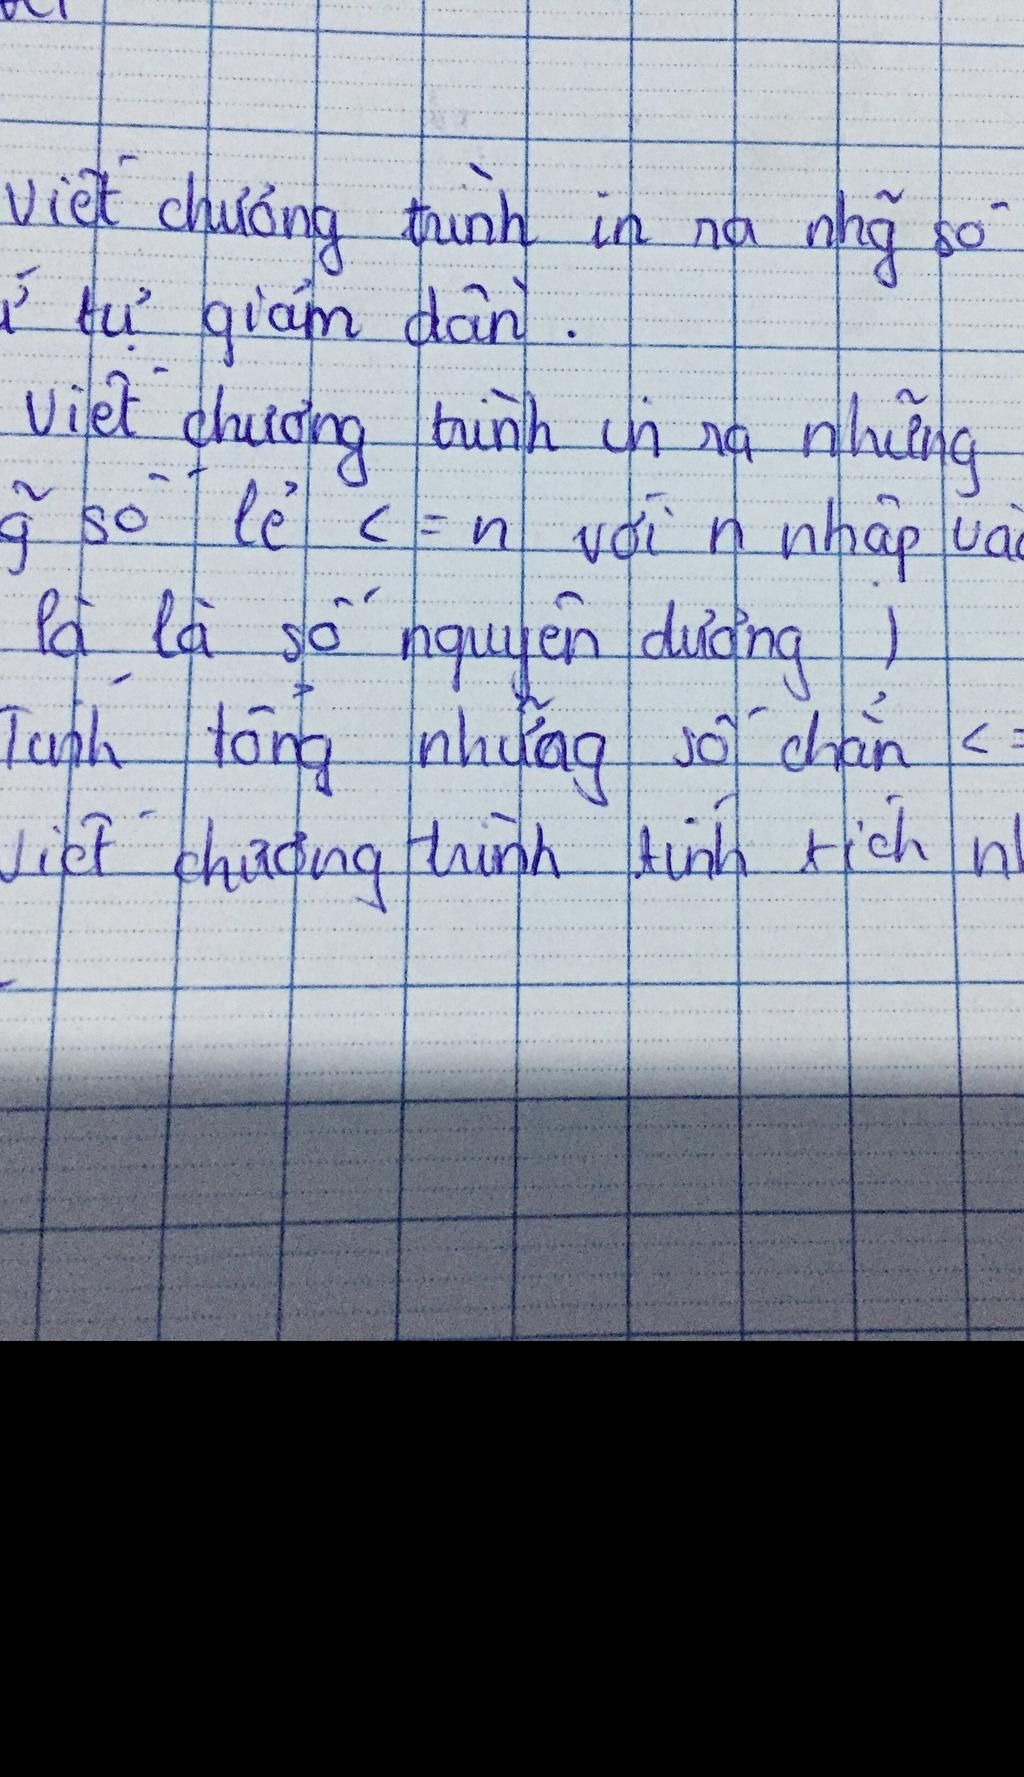 Viết chương trình in ra nhg̃ số
tự giảm dần.
Viết chương trình in ra những
g̃ số lẻ <= n với n nhập vào
là là số nguyên dương )
Tính tổng những số chẵn <=
Viết chương trình tính tích nh